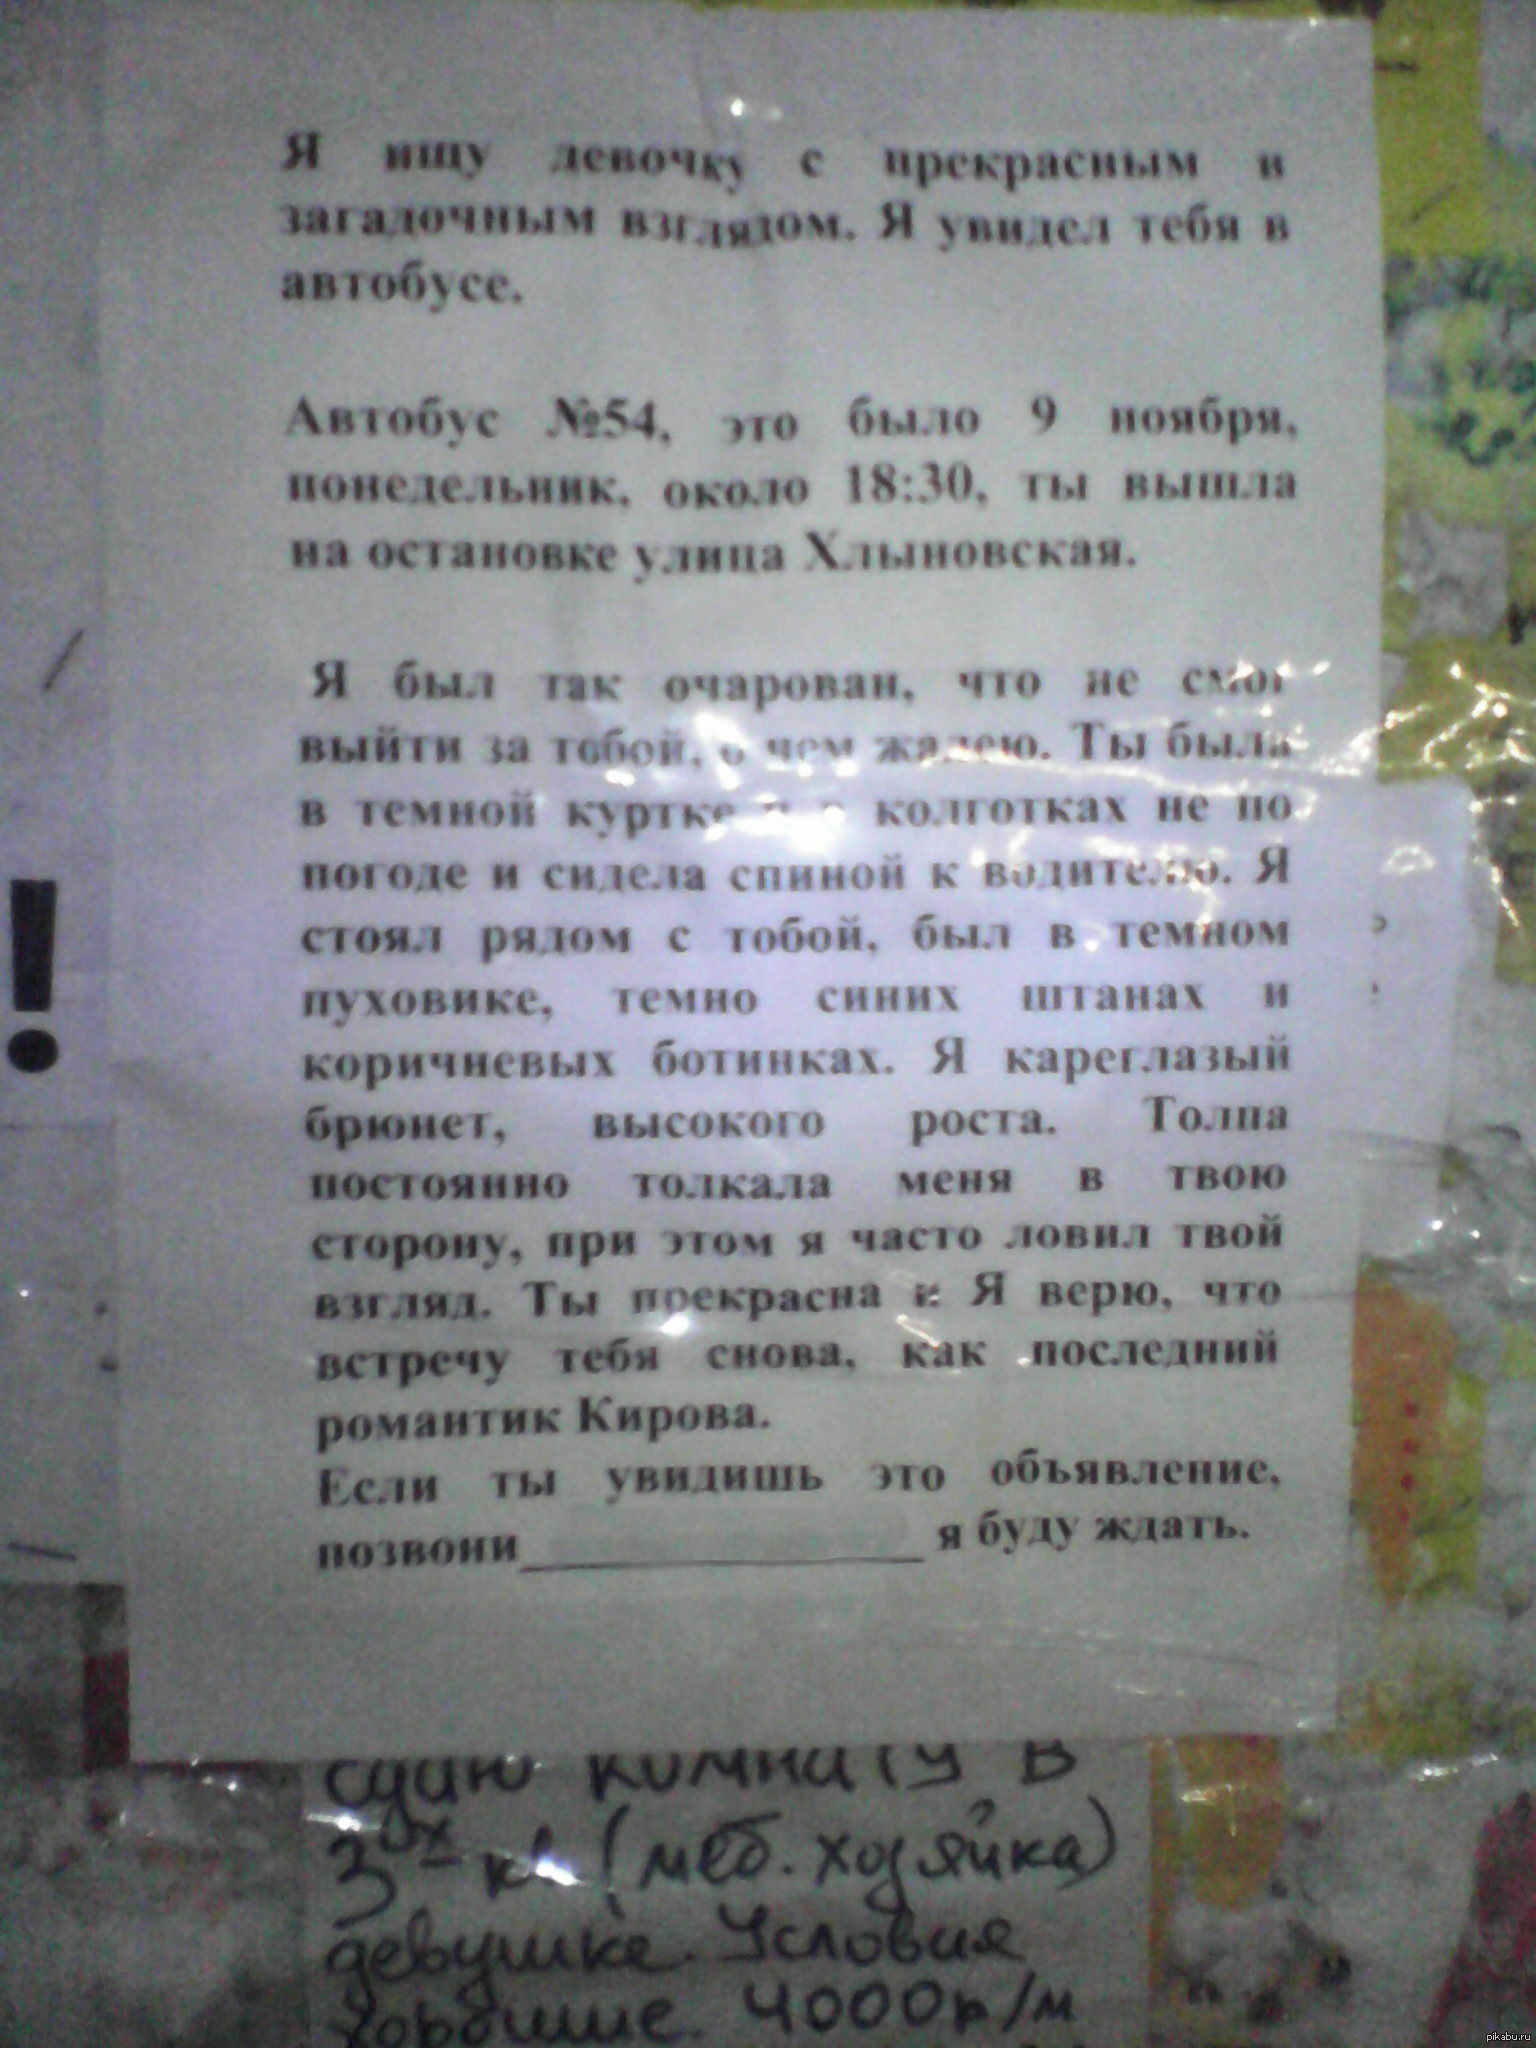 Я ищу девочку с прекрасным и
загадочным взглядом. Я увидел тебя в
автобусе.
Автобус №54, это было 9 ноября,
понедельник, около 18:30, ты вышла
на остановке улица Хлыновская.
Я был так очарован, что не смог
выйти за тобой, о чем жалею. Ты была
в темной куртке колготках не по
погоде и сидела спиной к водителю. Я
стоял рядом с тобой, был в темном
пуховике, темно синих штанах и
коричневых ботинках. Я кареглазый
брюнет, высокого роста. Толпа
постоянно толкала меня в твою
сторону, при этом я часто ловил твой
взгляд. Ты прекрасна и Я верю, что
встречу тебя снова, как последний
романтик Кирова.
Если ты увидишь это объявление,
позвони я буду ждать.
!
сдаю комнату в
3ох-к (меб. хозяйка)
девушке. Условия
хорошие. 4000р/м
pikabu.ru